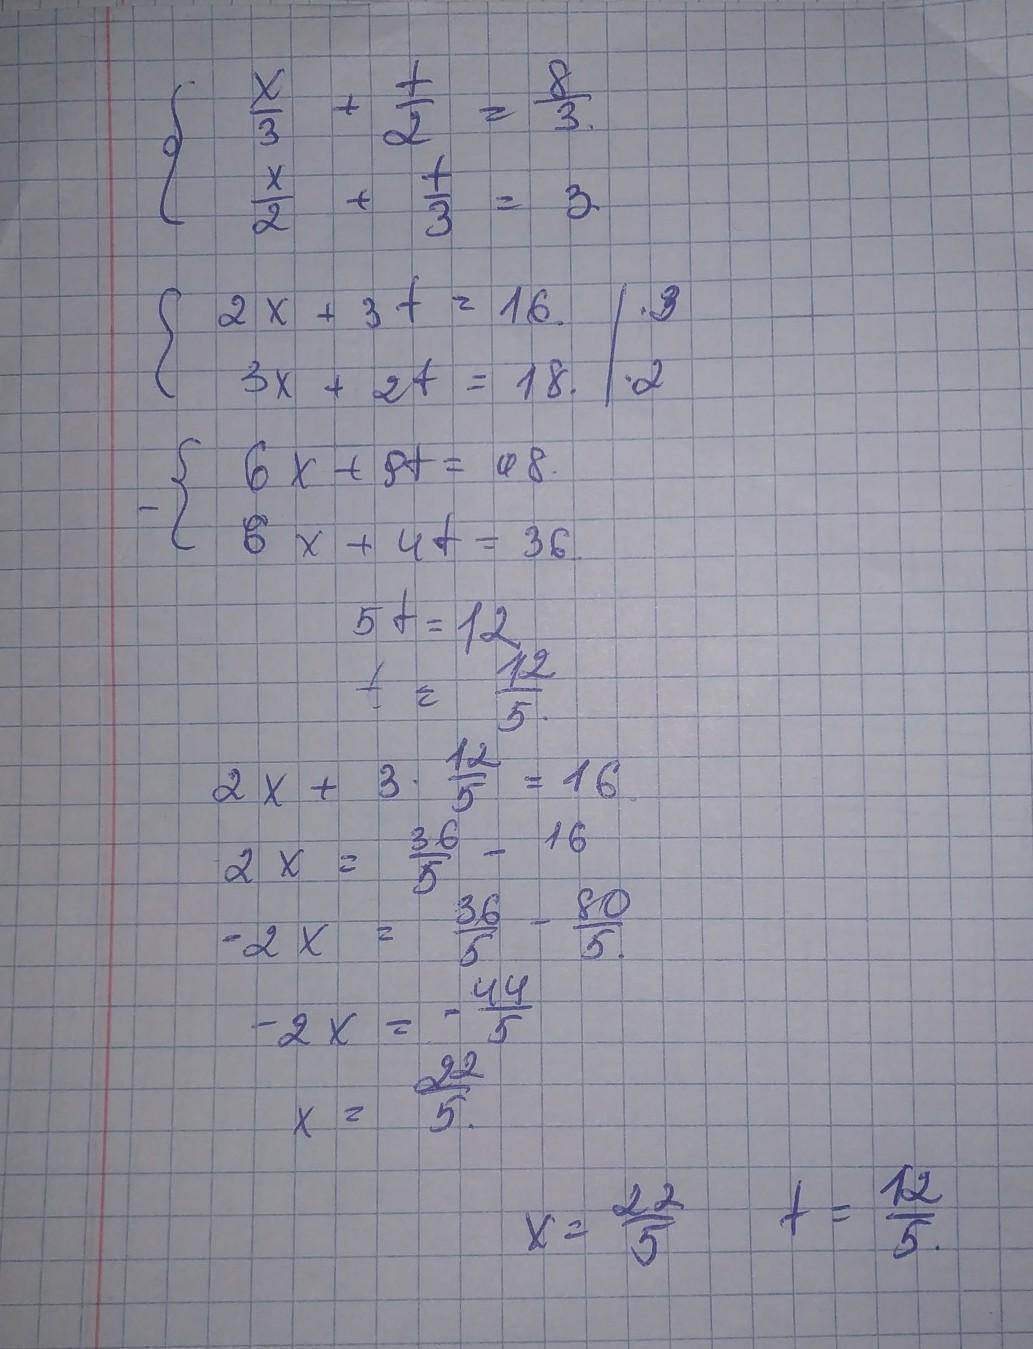 x/3 + t/2 = 8/3.
x/2 + t/3 = 3
2x + 3t = 16. | ·3
3x + 2t = 18. | ·2
6x + 9t = 48.
- 6x + 4t = 36
5t = 12
t = 12/5.
2x + 3 · 12/5 = 16
2x = 36/5 - 16
-2x = 36/5 - 80/5.
-2x = -44/5
x = 22/5.
x = 22/5 t = 12/5.